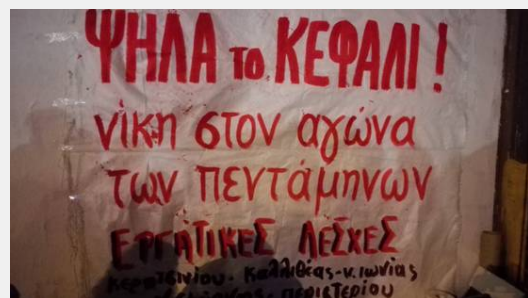 ΨΗΛΑ το ΚΕΦΑΛΙ!
νίκη στον αγώνα
των πεντάμηνων
ΕΡΓΑΤΙΚΕΣ ΛΕΣΧΕΣ
Κερατσινίου - Καλλιθέας - Ν. Ιωνίας
Περιστερίου